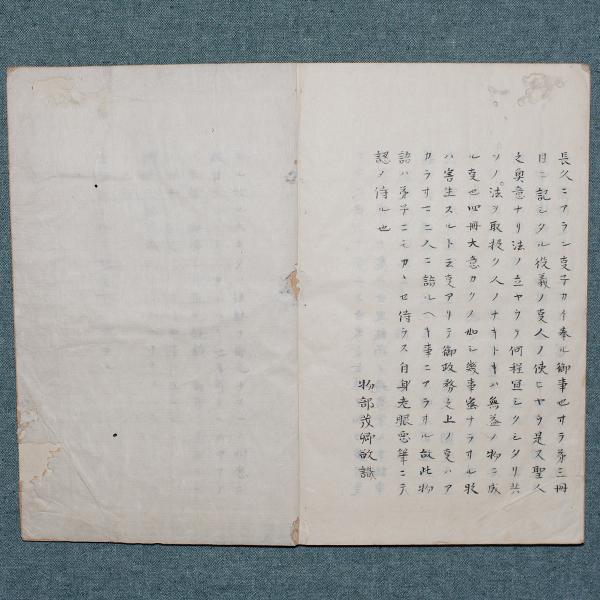 長久ニアラン叓ヲカイ奉ル御事也サテ第三冊
目ニ記シタル役義ノ叓人ノ使ヒヤウ是又聖人
之奥意ナリ法ノ立ヤウヲ何程宜シクシタリ共
ソノ法ヲ取扱フ人ノナキトキハ無益ノ物ニ成
ル叓也四冊大意カクノ如シ幾事密ナラサル時
ハ害生スルト云叓アリテ御政務之上ノ叓ハア
カラサマニ人ニ語ルヘキ事ニアラサル故此物
語ハ弟子ニモカヽセ侍ラス自身老眼悪筆ニテ
認メ侍ル也
物部茂卿敬識